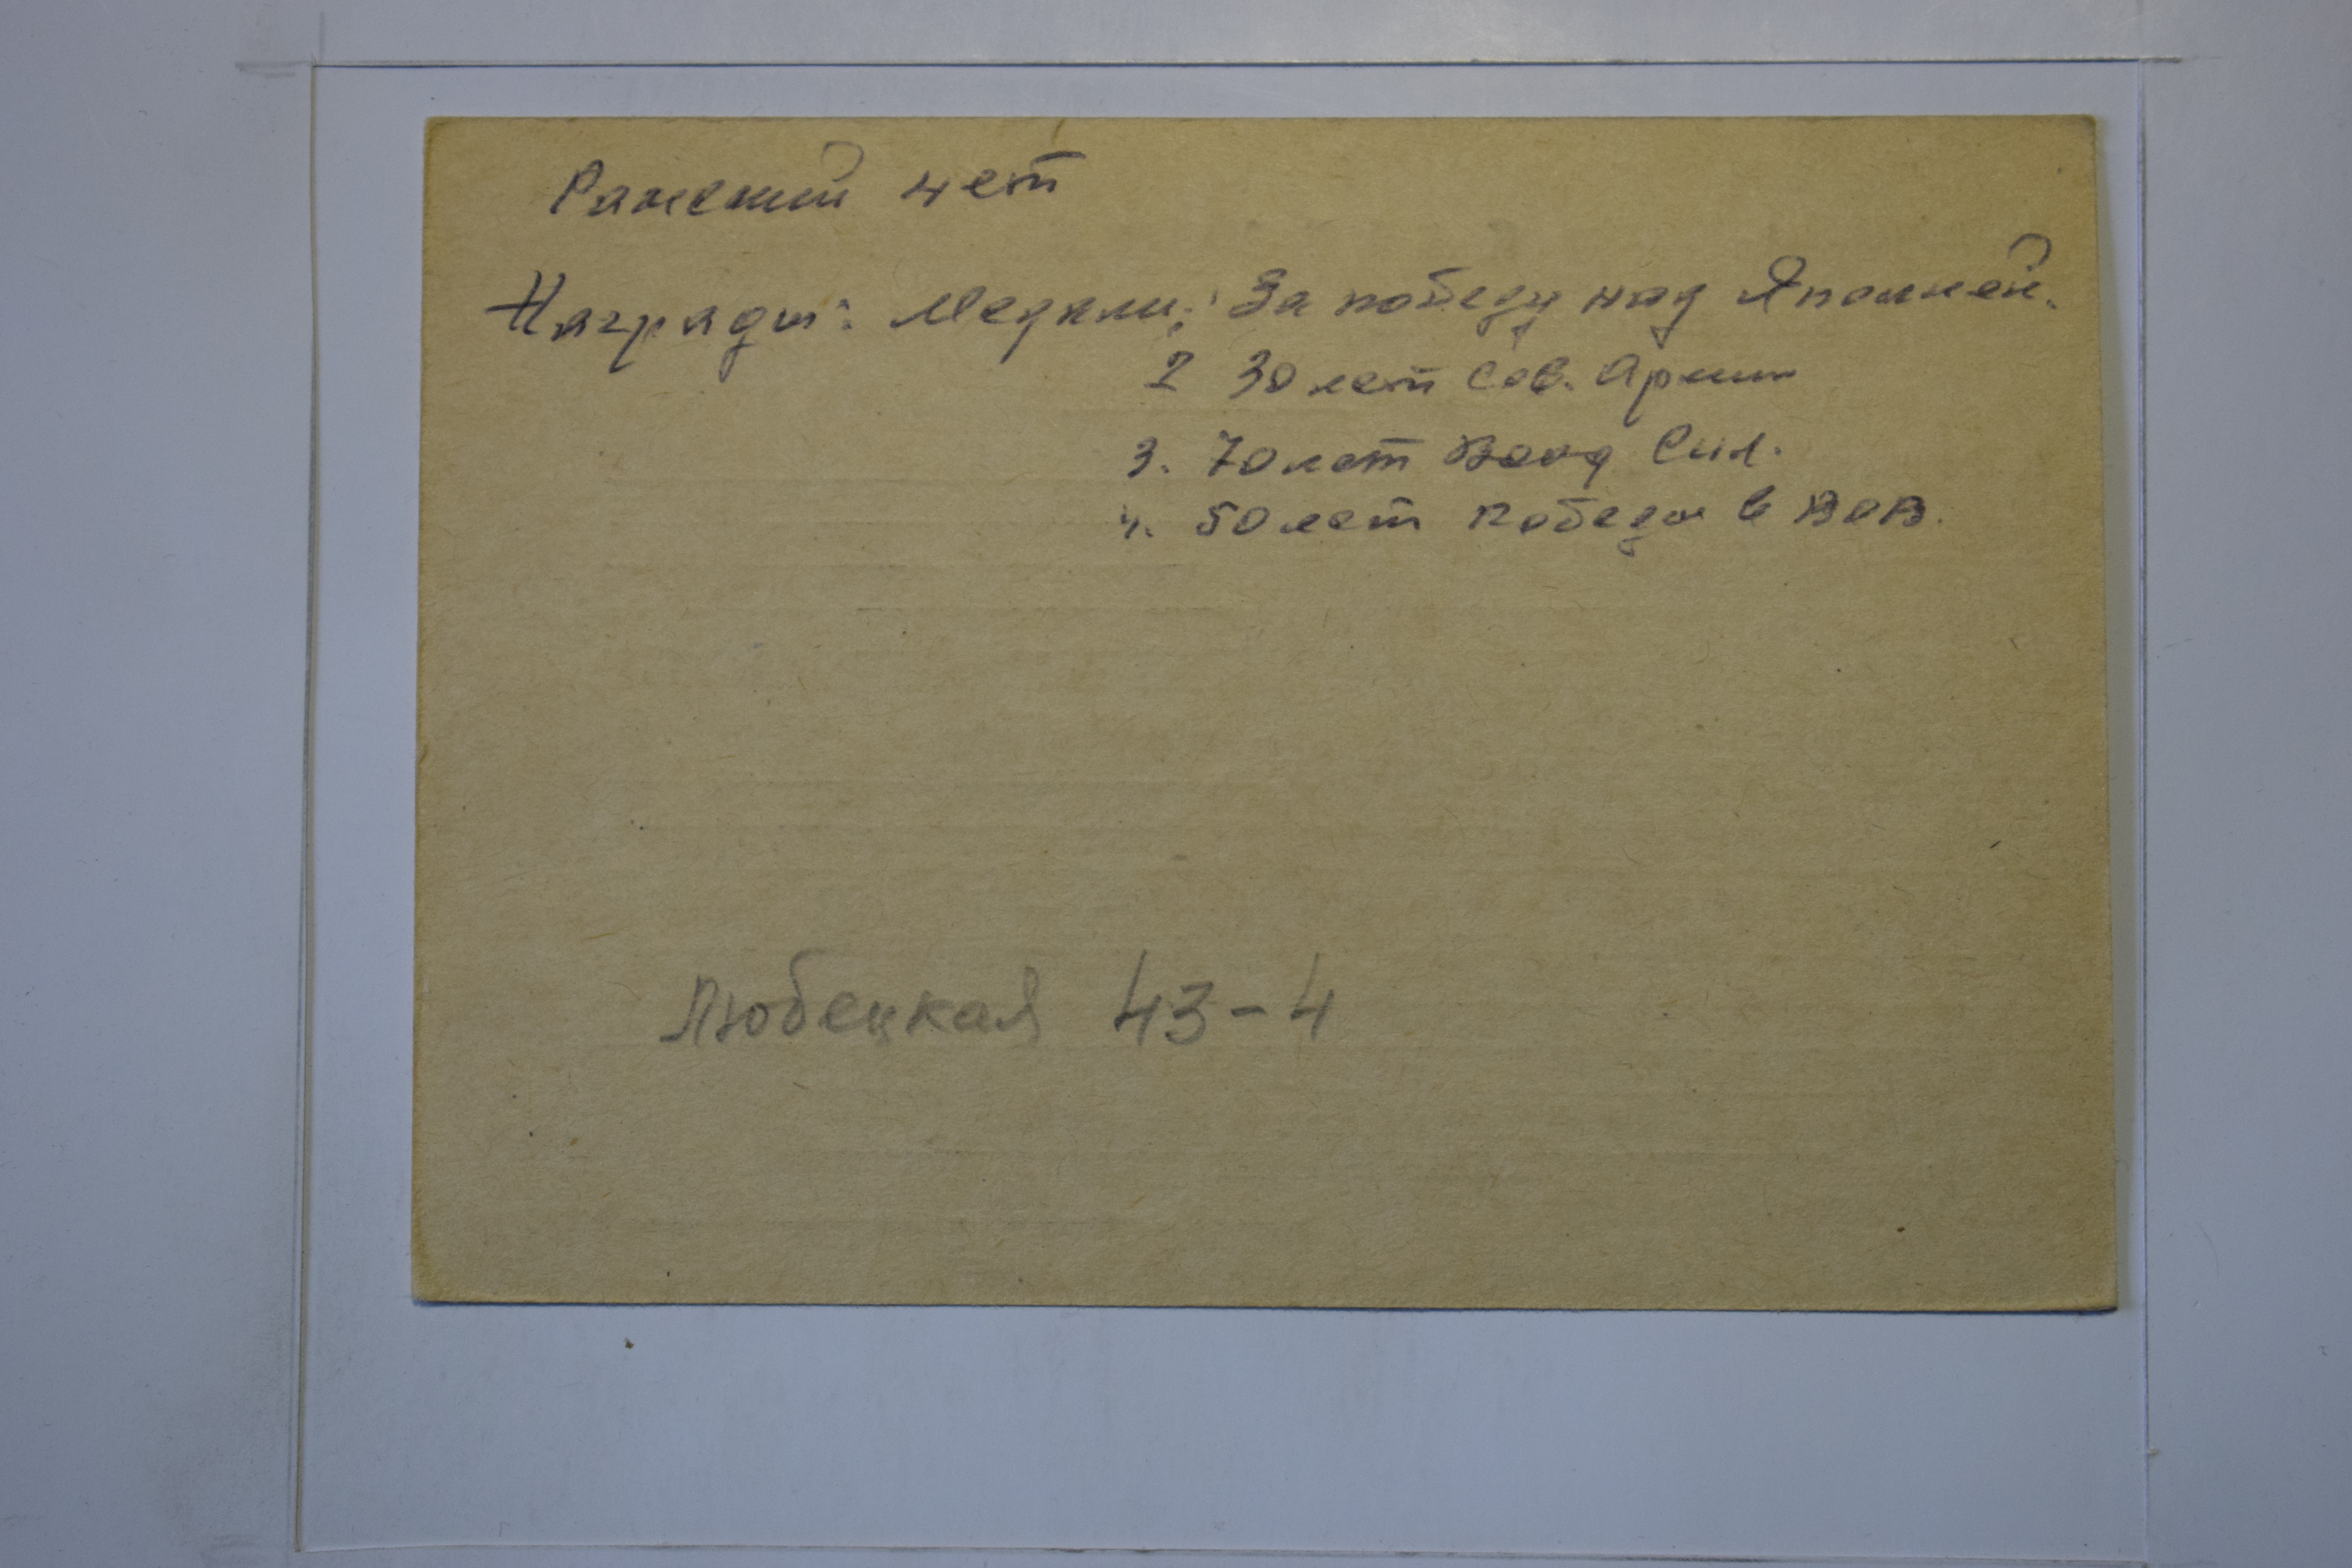 Ранений нет
Награды: Медали: За победу над Японией.
2 30 лет Сов. Армии
3. 70 лет Воор Сил.
4. 50 лет победы в ВОВ.
Любецкая 43-4